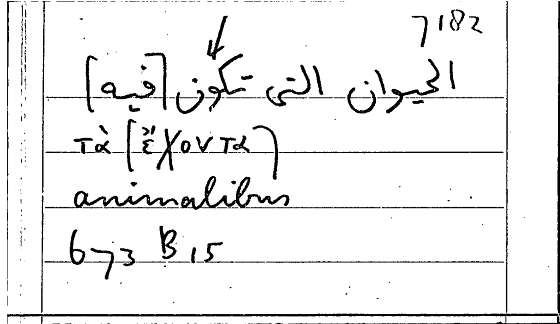 7182
الحيوان التى تكون [فيه]
τὰ [ἔχοντα]
animalibus
673 B 15